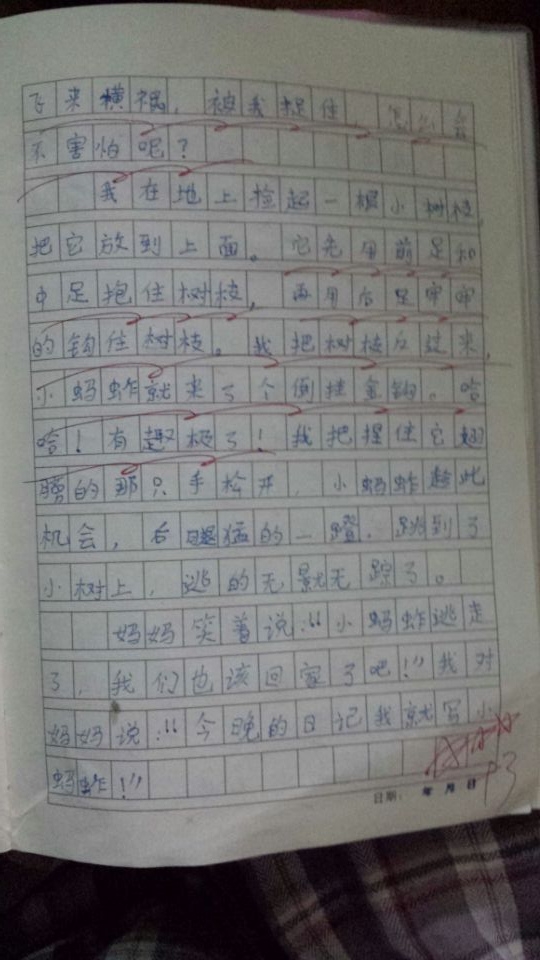 飞来横祸，被我捉住，怎么会
不害怕呢？
我在地上捡起一根小树枝，
把它放到上面。它先用前足和
中足抱住树枝，再用后足牢牢
的钩住树枝。我把树枝反过来，
小蚂蚱就来了个倒挂金钩。哈
哈！有趣极了！我把捏住它翅
膀的那只手松开，小蚂蚱趁此
机会，后腿猛的一蹬，跳到了
小树上，逃的无影无踪了。
妈妈笑着说：“小蚂蚱逃走
了，我们也该回家了吧！”我对
妈妈说：“今晚的日记我就写小
蚂蚱！”
日期： 年 月 日